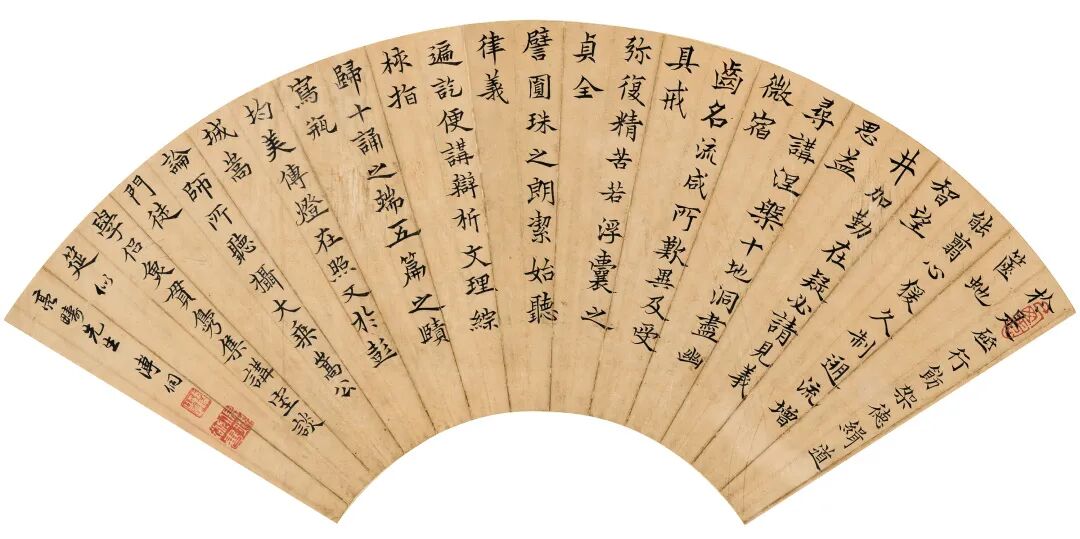 於是砥行飭架德緝道
薩地
能翦心猨久制遡流增
智望
井加勤在疑必請見義
思益
尋講涅槃十地洞盡幽
微宿
齒名流咸所歎異及受
具戒
弥復精苦若浮囊之
貞全
譬圓珠之朗潔始聽
律義
遍訖便講辯析文理綜
指
歸十誦之端五篇之賾
寫瓶
均美傳燈在照又於彭
城嵩
論師所聽攝大乘嵩公
門徒
學侶魚貫鳧集講室談
筵 似
亮疇先生 溥侗